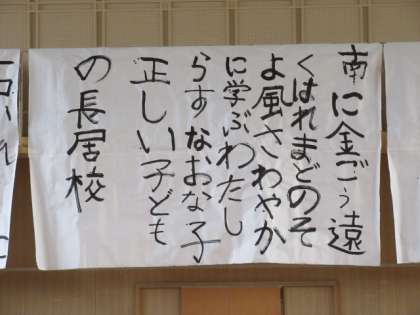 南に金ごう遠
くはれまどのそ
よ風さわやか
に学ぶわたし
らすなおな子
正しい子ども
の長居校